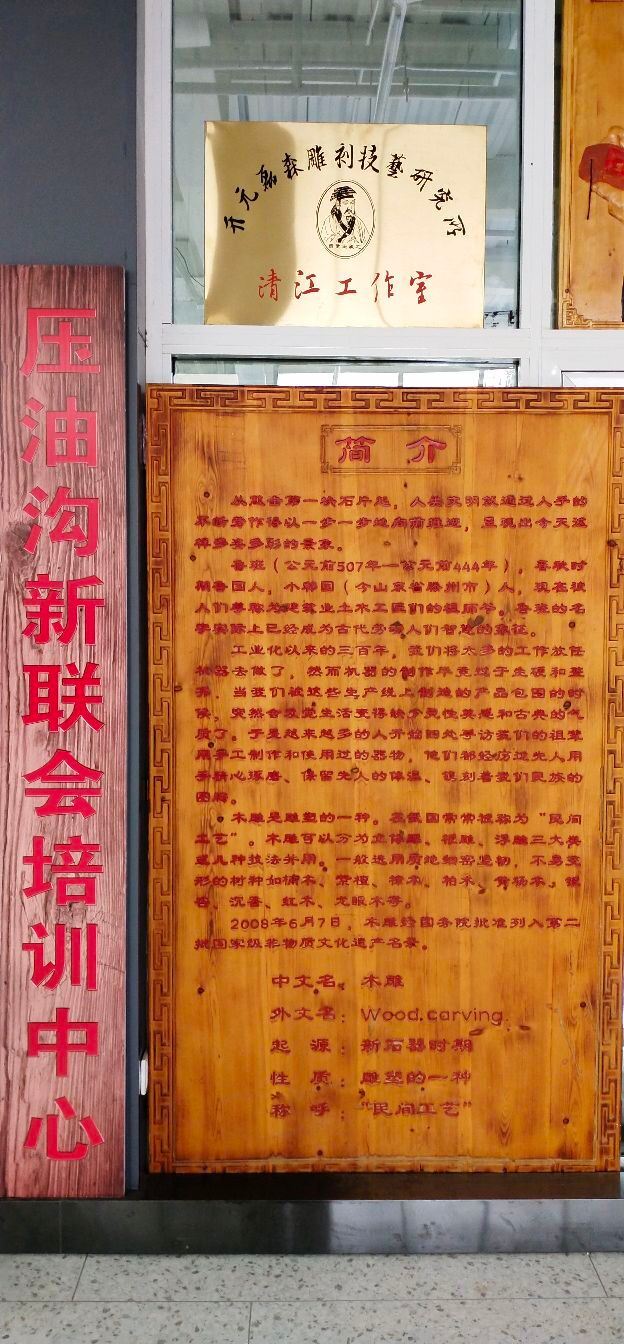 开元磊森雕刻技藝研究所
清江工作室
压油沟新联会培训中心
简 介
从敲击第一块石片起，人类文明就通过人手的
不断劳作得以一步一步地向前推进，呈现出今天这
样多姿多彩的景象。
鲁班（公元前507年—公元前444年），春秋时
期鲁国人，小邾国（今山东省滕州市）人，现在被
人们尊称为建筑业土木工匠们的祖师爷。鲁班的名
字实际上已经成为古代劳动人们智慧的象征。
工业化以来的三百年，我们将太多的工作放任
机器去做了，然而机器的制作毕竟过于生硬和整
齐，当我们被这些生产线上制造的产品包围的时
候，突然会发觉生活变得缺少灵性美感和古典的气
质了。于是越来越多的人开始回处寻访我们的祖辈
用手工制作和使用过的器物，他们都经历过先人用
手精心琢磨、保留先人的体温、镌刻着我们民族的
图腾。
木雕是雕塑的一种，在我国常常被称为“民间
工艺”。木雕可以分为立体雕、根雕、浮雕三大类
或几种技法并用。一般选用质地细密坚韧，不易变
形的树种如楠木、紫檀、樟木、柏木、黄杨木、银
杏、沉香、红木、龙眼木等。
2008年6月7日，木雕经国务院批准列入第二
批国家级非物质文化遗产名录。
中文名：木雕
外文名：Wood carving
起 源：新石器时期
性 质：雕塑的一种
称 呼：“民间工艺”